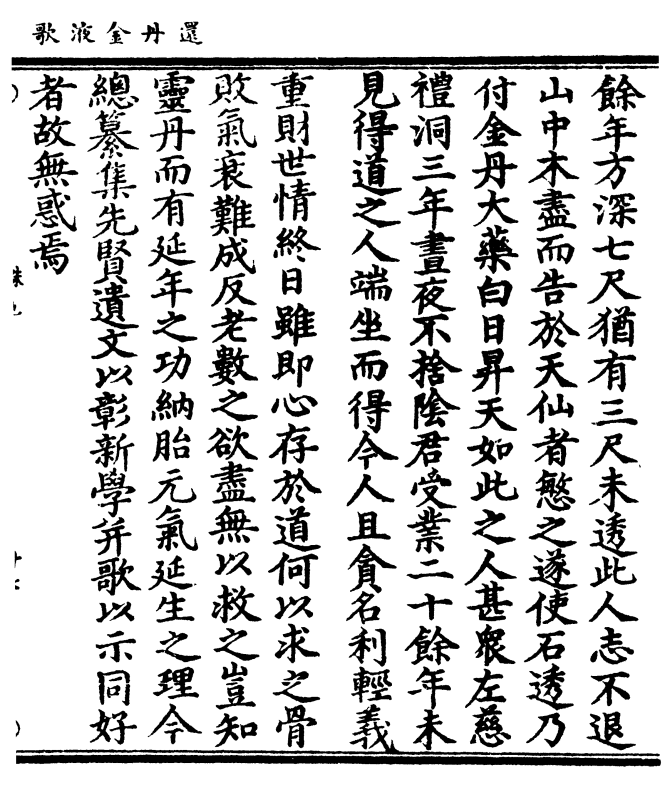 還丹金液歌
餘年方深七尺猶有三尺未透此人志不退
山中木盡而告於天仙者慜之遂使石透乃
付金丹大藥白日昇天如此之人甚衆左慈
禮洞三年晝夜不捨陰君受業二十餘年未
見得道之人端坐而得今人且貪名利輕義
重財世情終日雖即心存於道何以求之骨
敗氣衰難成反老數之欲盡無以救之豈知
靈丹而有延年之功納胎元氣延生之理今
總纂集先賢遺文以彰新學并歌以示同好
者故無惑焉